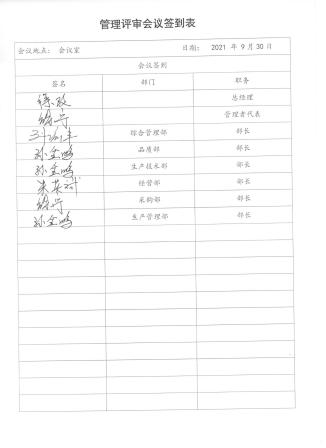 管理评审会议签到表
会议地点： 会议室 日期： 2021 年 9 月 30 日
会议签到
签名 部门 职务
总经理
管理者代表
综合管理部 部长
孙金鸣 品质部 部长
孙金鸣 生产技术部 部长
经营部 部长
采购部 部长
孙金鸣 生产管理部 部长